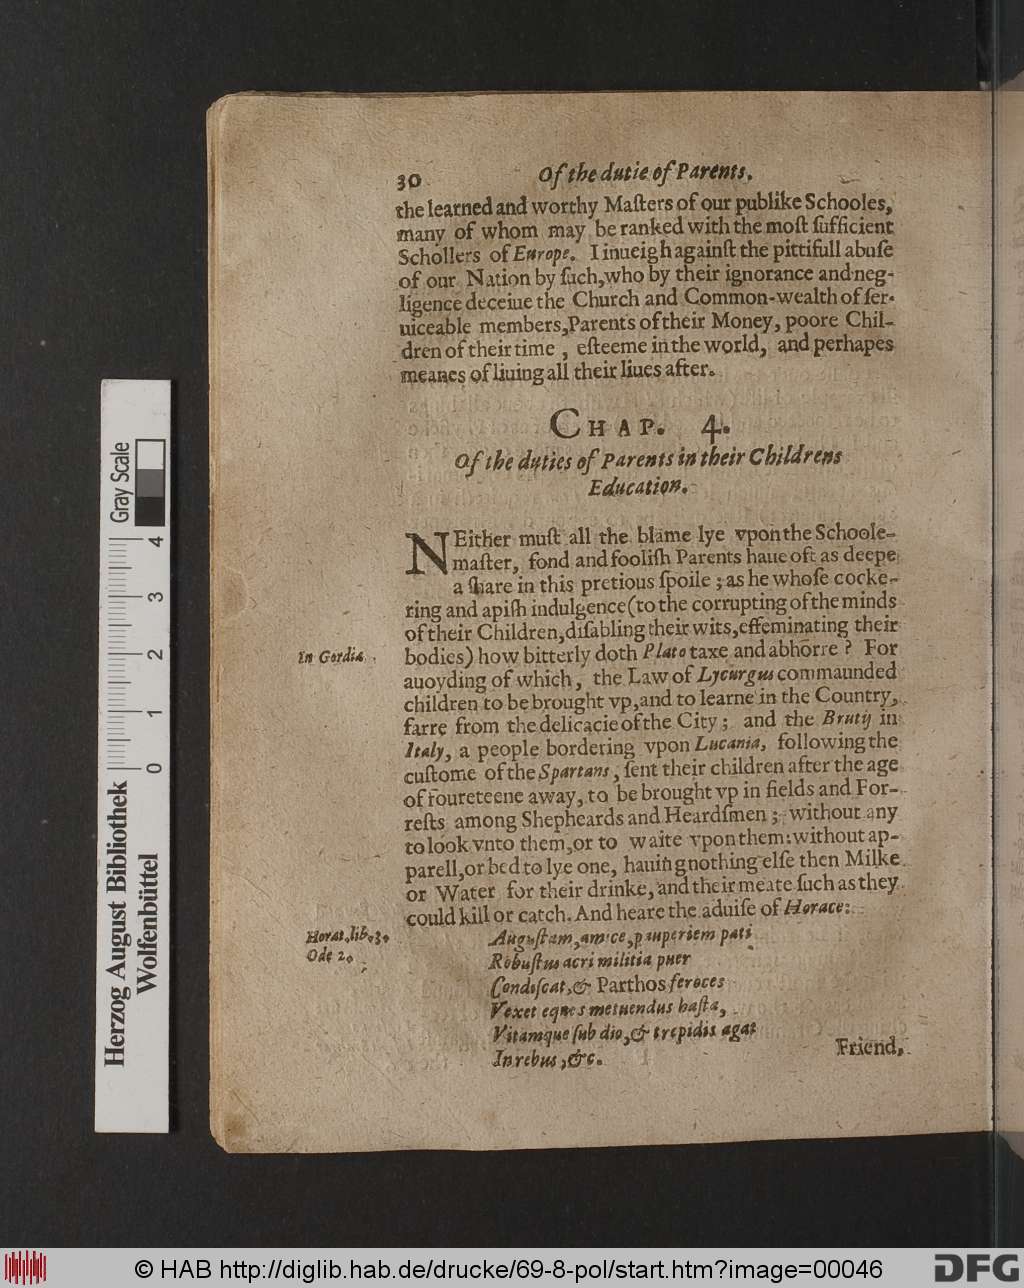 30 Of the dutie of Parents.
the learned and worthy Maſters of our publike Schooles,
many of whom may be ranked with the moſt ſufficient
Schollers of Europe. I inueigh againſt the pittifull abuſe
of our Nation by ſuch, who by their ignorance and neg-
ligence deceiue the Church and Common-wealth of ſer-
uiceable members, Parents of their Money, poore Chil-
dren of their time, eſteeme in the world, and perhapes
meanes of liuing all their liues after.
CHAP. 4.
Of the duties of Parents in their Childrens
Education.
NEither muſt all the blame lye vpon the Schoole-
maſter, fond and fooliſh Parents haue oft as deepe
a ſhare in this pretious ſpoile; as he whoſe cocke-
ring and apiſh indulgence (to the corrupting of the minds
of their Children, diſabling their wits, effeminating their
bodies) how bitterly doth Plato taxe and abhorre? For
auoyding of which, the Law of Lycurgus commaunded
children to be brought vp, and to learne in the Country,
farre from the delicacie of the City; and the Brutij in
Italy, a people bordering vpon Lucania, following the
cuſtome of the Spartans, ſent their children after the age
of foureteene away, to be brought vp in fields and For-
reſts among Shepheards and Heardſmen; without any
to look vnto them, or to waite vpon them: without ap-
parell, or bed to lye one, hauing nothing elſe then Milke
or Water for their drinke, and their meate ſuch as they
could kill or catch. And heare the aduiſe of Horace:
Auguſtam, amice, pauperiem pati
Robuſtus acri militia puer
Condiſcat, & Parthos feroces
Vexet eques metuendus haſta,
Vitamque ſub dio, & trepidis agat
In rebus, &c.
Friend,
In Gordia.
Horat. lib. 3.
Ode 2.
Gray Scale
0 1 2 3 4
Herzog August Bibliothek
Wolfenbüttel
© HAB http://diglib.hab.de/drucke/69-8-pol/start.htm?image=00046
DFG